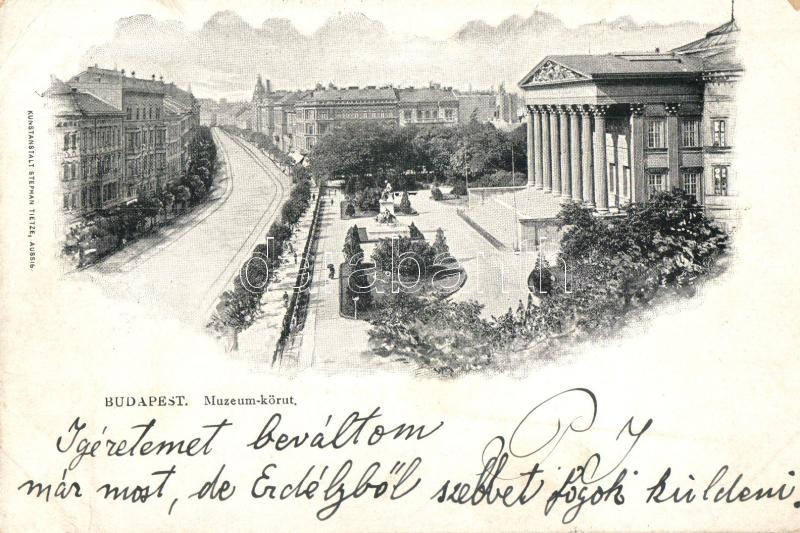 KUNSTANSTALT STEPHAN TIETZE, AUSSIG.
darabanth.com
BUDAPEST. Muzeum-körut.
Igéretemet beváltom
már most, de Erdélyből szebbet fogok küldeni.